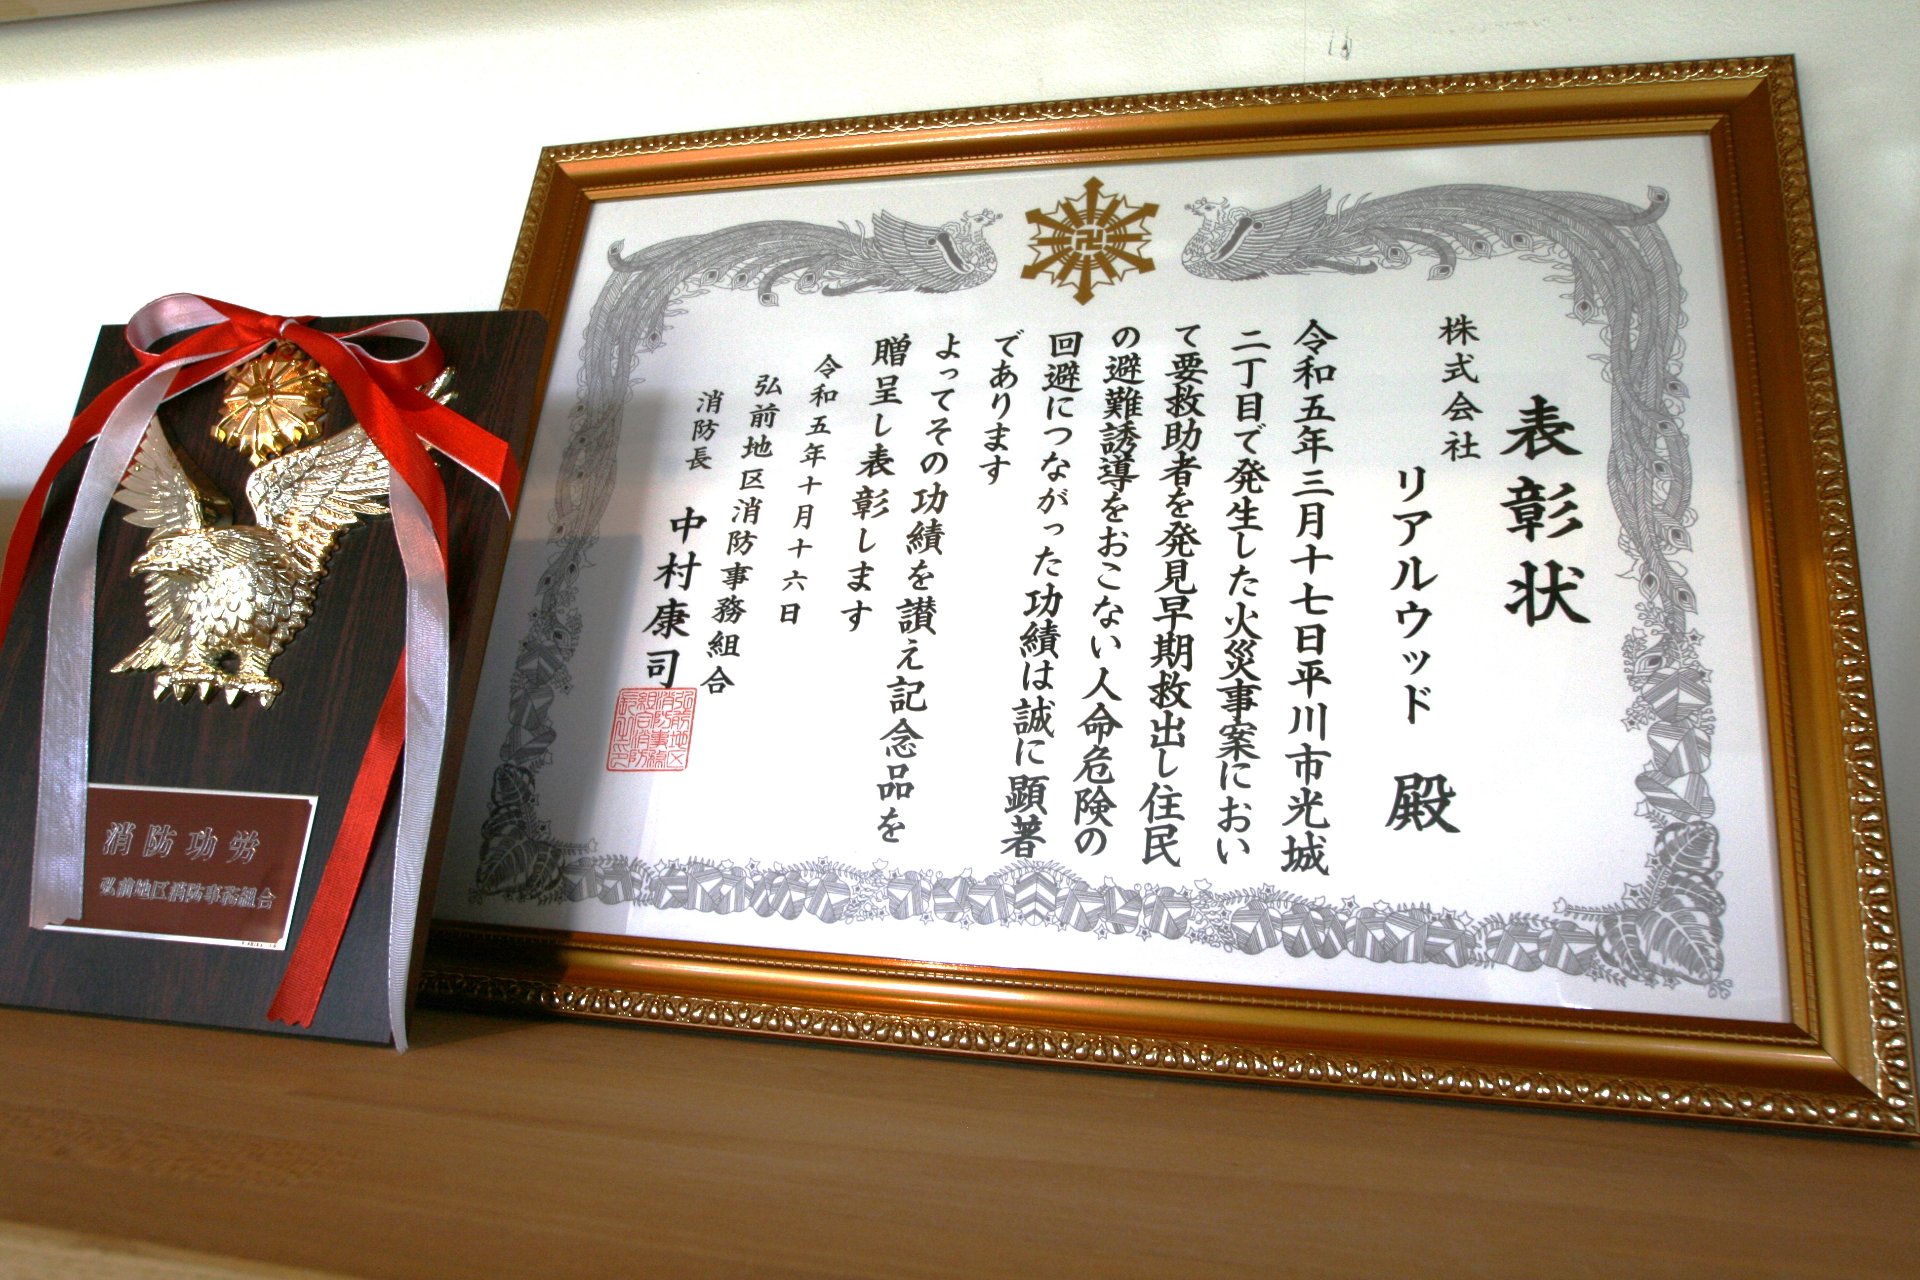 表彰状
株式会社
リアルウッド 殿
令和五年三月十七日平川市光城
二丁目で発生した火災事案におい
て要救助者を発見早期救出し住民
の避難誘導をおこない人命危険の
回避につながった功績は誠に顕著
であります
よってその功績を讃え記念品を
贈呈し表彰します
令和五年十月十六日
弘前地区消防事務組合
消防長 中村康司
消防功労
弘前地区消防事務組合